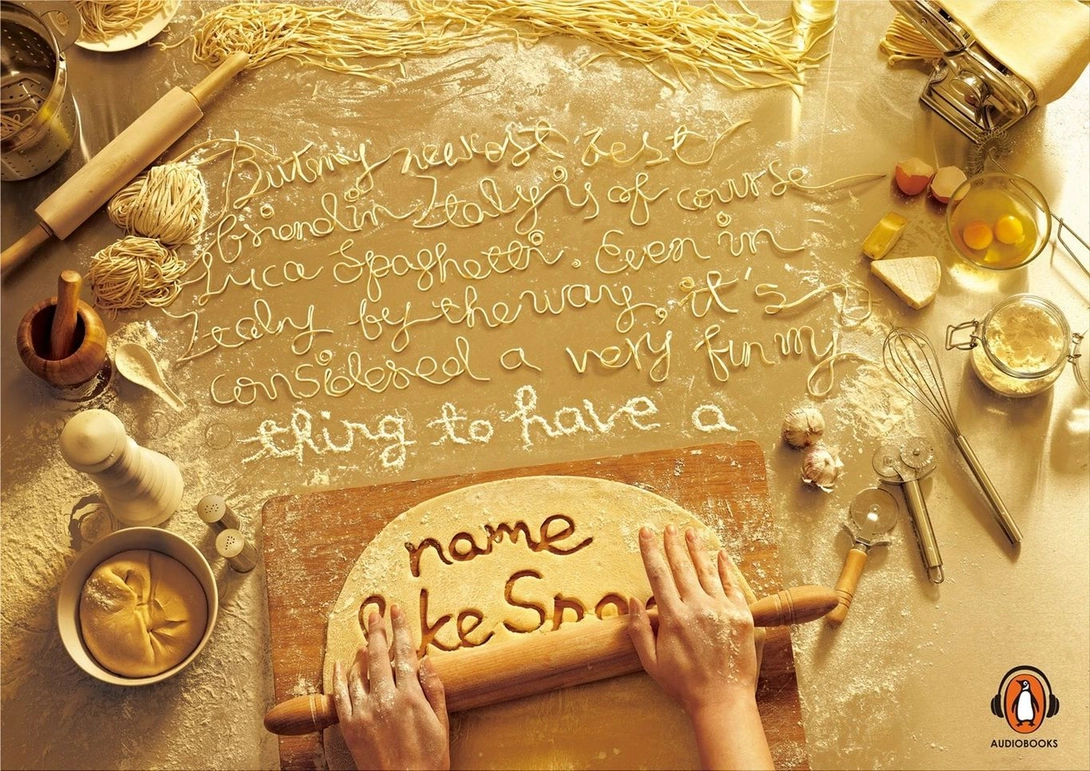 But my newest best
friend in Italy is of course
Luca Spaghetti. Even in
Italy by the way, it's
considered a very funny
thing to have a
name
like Spag
AUDIOBOOKS